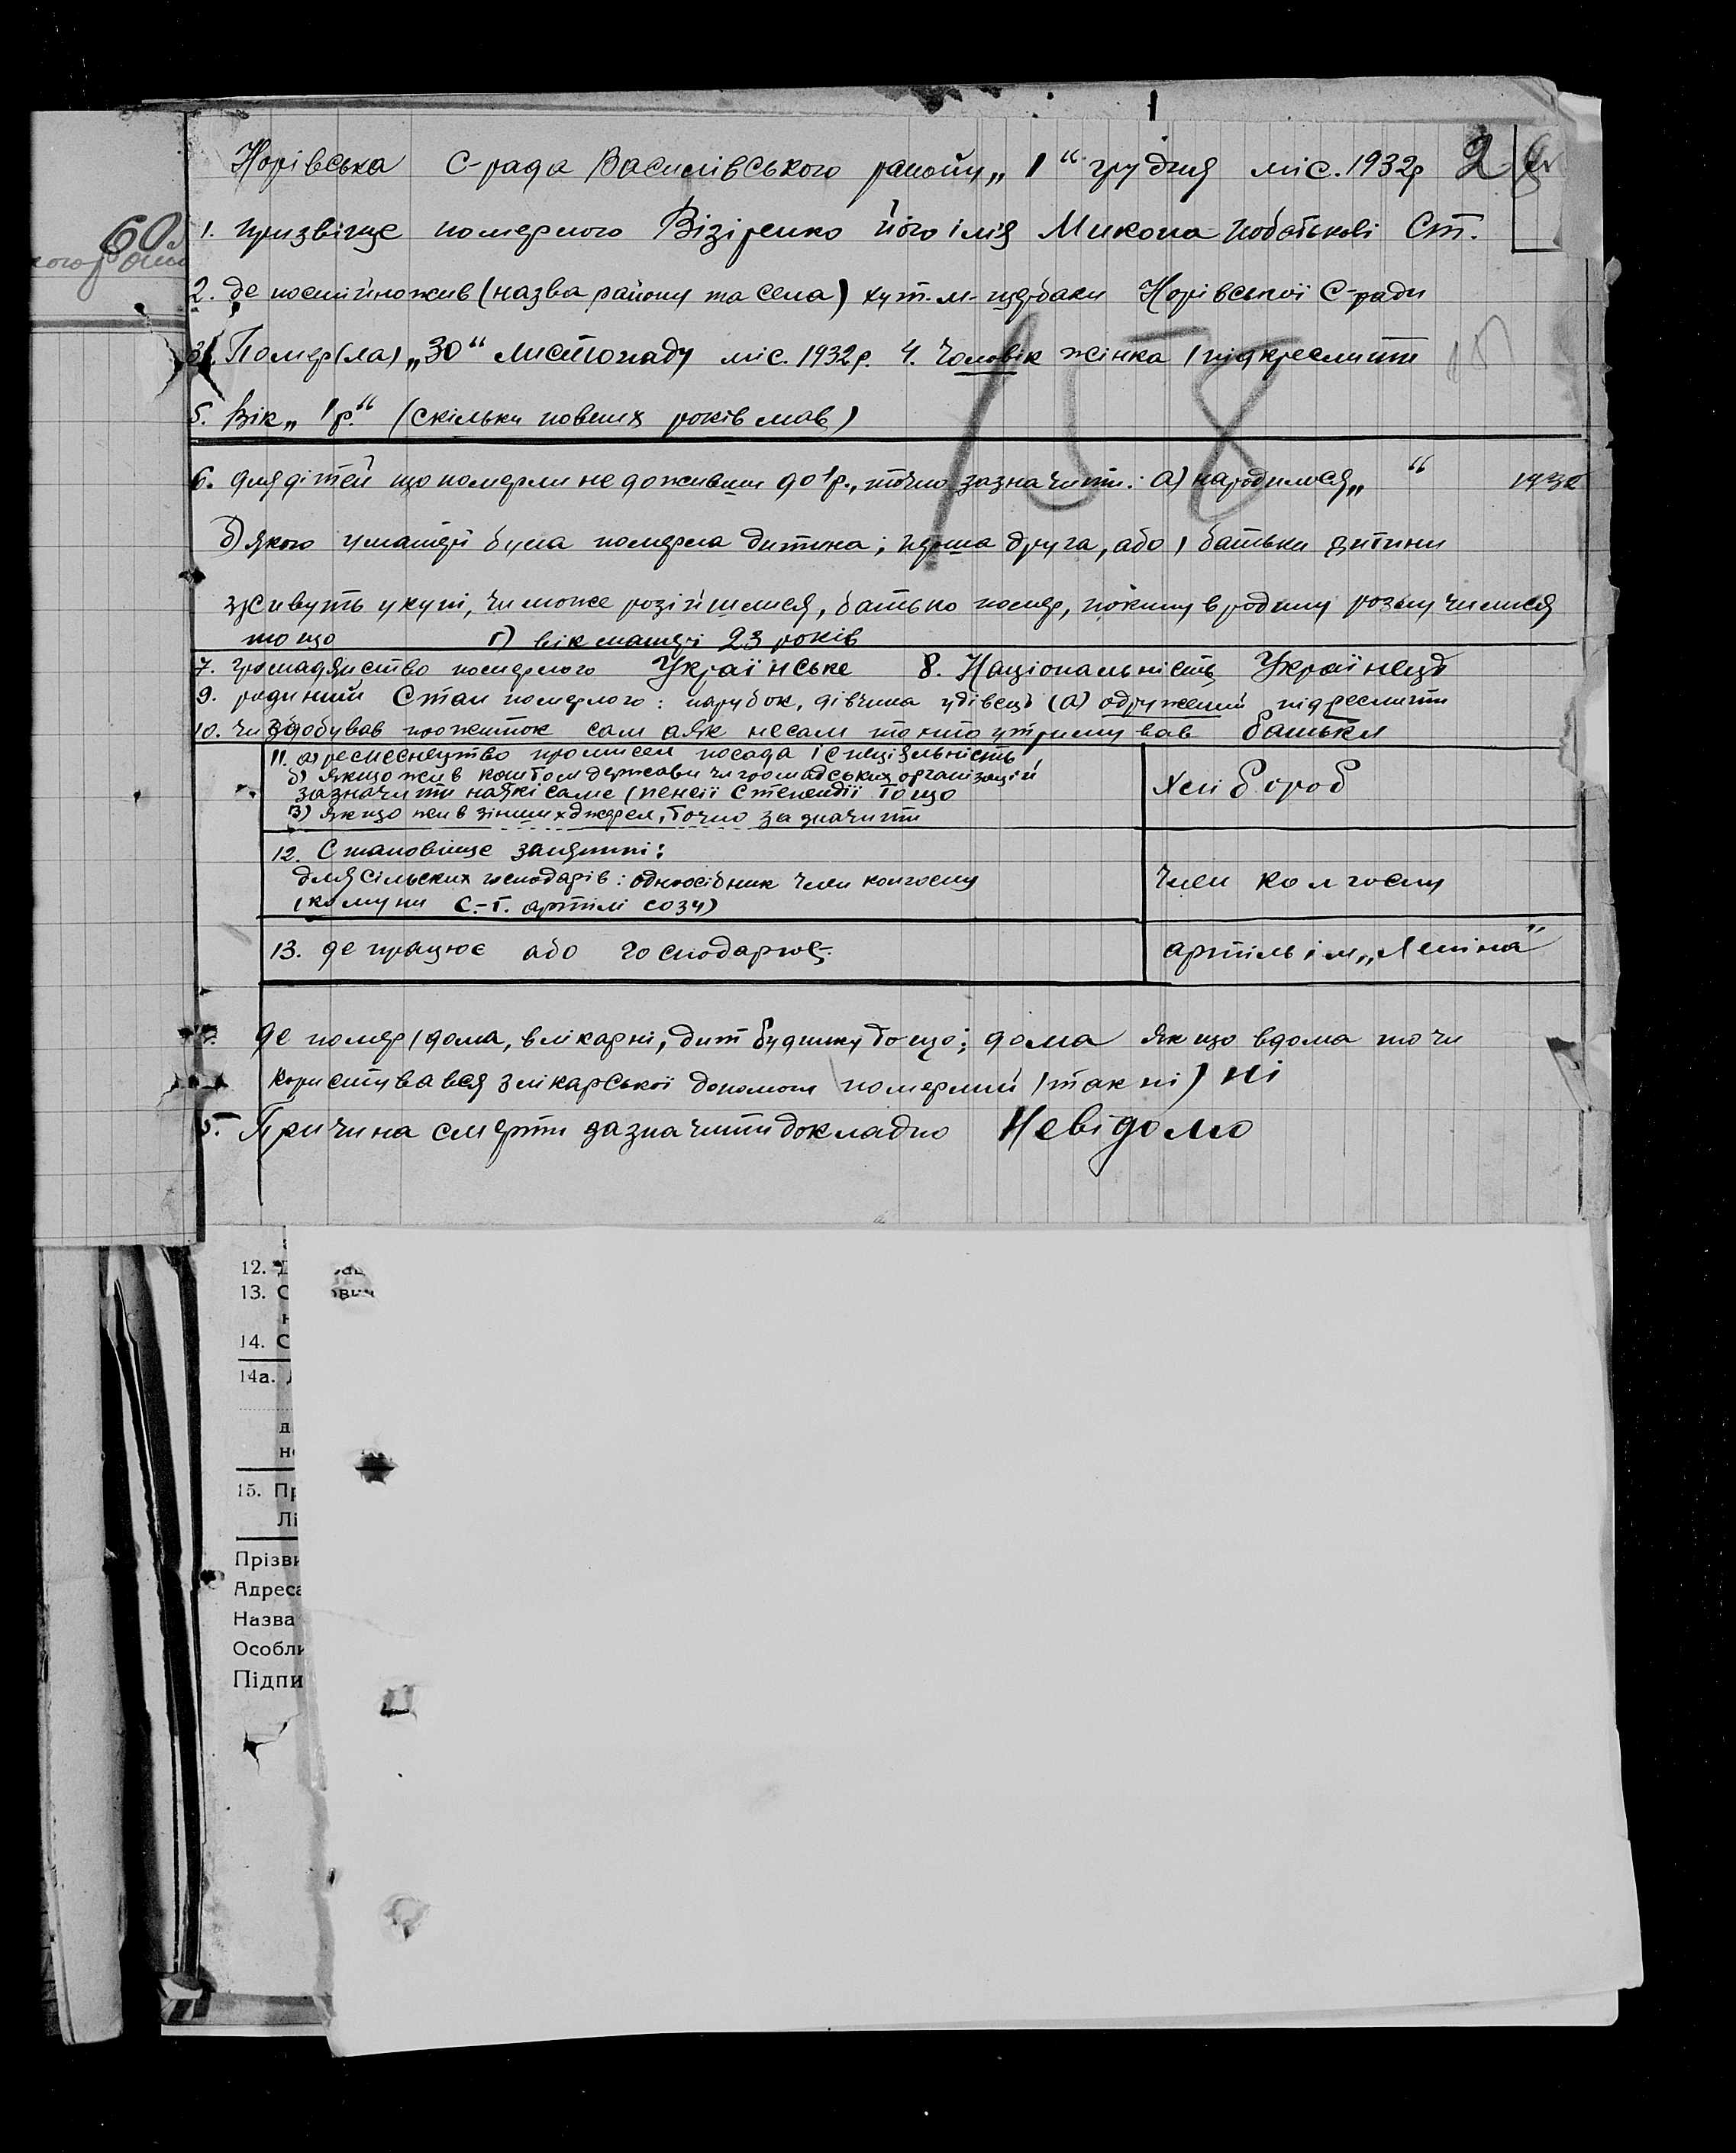 Норівська С-рада Василівського району „1“ грудня міс. 1932р 2
60
1. призвіще померлого Візіренко його імʼя Микола побатькові Ст.
2. де постийножив (назва району та села) хут. м-щербаки Норівської С-ради
3. Помер(ла) „30“ листопаду міс. 1932р. 4. Чоловік жінка (підкреслити
5. Вік „1р.“ (скільки повних років мав)
158
6. для дітей що померли не доживши до 1р., точно зазначити: а) народилося „ “ 1932
б) якого у матері була померла дитина; перша друга, або) батьки дитини
живуть укупі, чи може розійшлися, батько помер, покинув родину розлучилися
тощо г) вік матері 23 років
7. громадянство померлого Українське 8. Національність Українець
9. родиний Стан померлого: парубок, дівчина удівець (а) одружений підреслити
10. чи здобував прожиток сам аяк несам то хто утримував батьки
11. а) ремеснецтво промисел посада і специяльність
б) якщо жив коштом держави чи громадських організацій
зазначити наякі саме (пенсії Стипендії тощо
в) якщо жив зінших джерел, точно зазначити
Хлібороб
12. Становище занятті:
для сільских господарів: одноосібник член колгоспу
(комуни С.-Г. артілі созу)
Член колгоспу
13. де працює або господарює
артіль ім „Леніна“
де помер (дома, влікарні, дит будинку тощо: дома якщо вдома то чи
користувався злікарської допомоги померлий (так ні) ні
5. Причина смерти зазначити докладно Невідомо
12.
13. С
14. С
14а.
15. Пр
Лі
Прізви
Адреса
Назва
Особли
Підпи